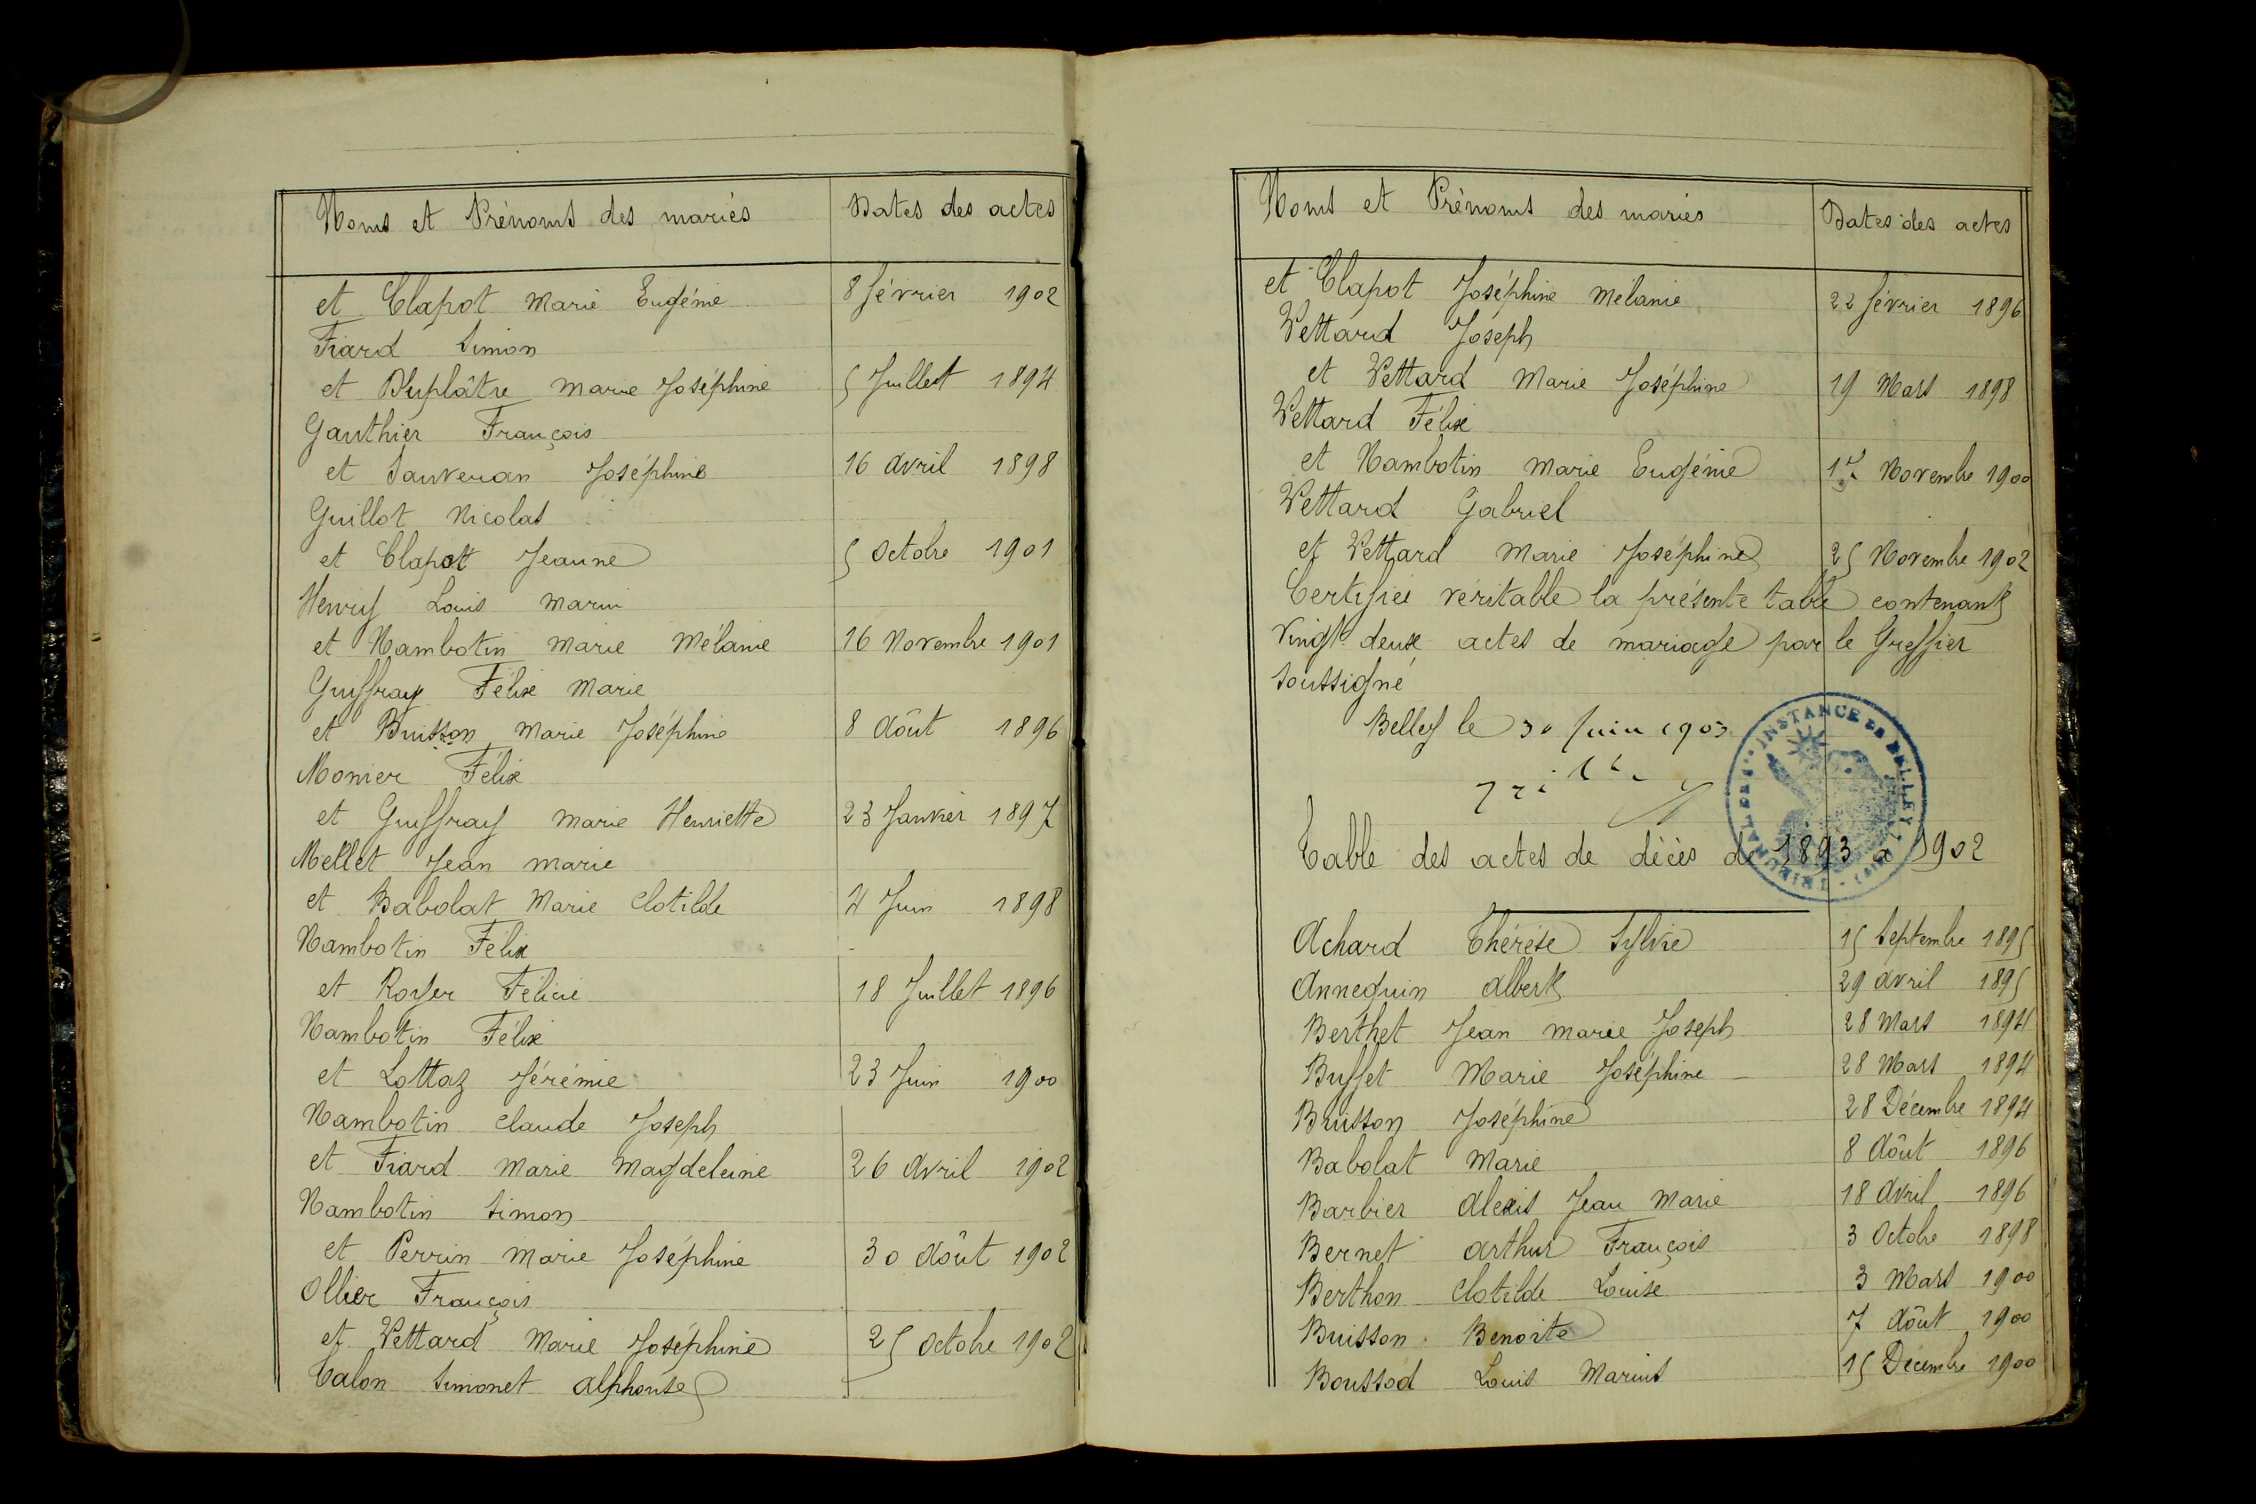 Noms et Prénoms des mariés Dates des actes
et Clapot Marie Eugénie 8 février 1902
Fiard Simon
et Duplâtre Marie Joséphine 5 Juillet 1894
Gauthier François
et Sauveran Joséphine 16 Avril 1898
Guillot Nicolas
et Clapot Jeanne 5 Octobre 1901
Henry Louis Marin
et Nambotin Marie Mélanie 16 Novembre 1901
Guiffray Félix Marie
et Buisson Marie Joséphine 8 Aôut 1896
Monier Félix
et Guiffray Marie Henriette 23 Janvier 1897
Mellet Jean Marie
et Babolat Marie Clotilde 4 Juin 1898
Nambotin Félix
et Royer Félicie 18 Juillet 1896
Nambotin Félix
et Lottaz Jérémie 23 Juin 1900
Nambotin Claude Joseph
et Fiard Marie Magdeleine 26 Avril 1902
Nambotin Simon
et Perrin Marie Joséphine 30 Aôut 1902
Ollier François
et Vettard Marie Joséphine 25 Octobre 1902
Talon Simonet Alphonse
Noms et Prénoms des mariés Dates des actes
et Clapot Joséphine Mélanie 22 février 1896
Vettard Joseph
et Vettard Marie Joséphine 19 Mars 1898
Vettard Félix
et Nambotin Marie Eugénie 1er Novembre 1900
Vettard Gabriel
et Vettard Marie Joséphine 25 Novembre 1902
Certifiée véritable la présente table contenant
vingt deux actes de mariage par le Greffier
soussigné
Belley le 30 Juin 1903
TRIBUNAL DE 1re INSTANCE DE BELLEY (AIN)
Table des actes de décès de 1893 a 1902
Achard Thérèse Sylvie 15 Septembre 1895
Annequin Albert 29 Avril 1895
Berthet Jean Marie Joseph 28 Mars 1894
Buffet Marie Joséphine 28 Mars 1894
Buisson Joséphine 28 Décembre 1894
Babolat Marie 8 Aôut 1896
Barbier Alexis Jean Marie 18 Avril 1896
Bernet Arthur François 3 Octobre 1898
Berthon Clotilde Louise 3 Mars 1900
Buisson Benoite 7 Aôut 1900
Boussod Louis Marius 15 Décembre 1900